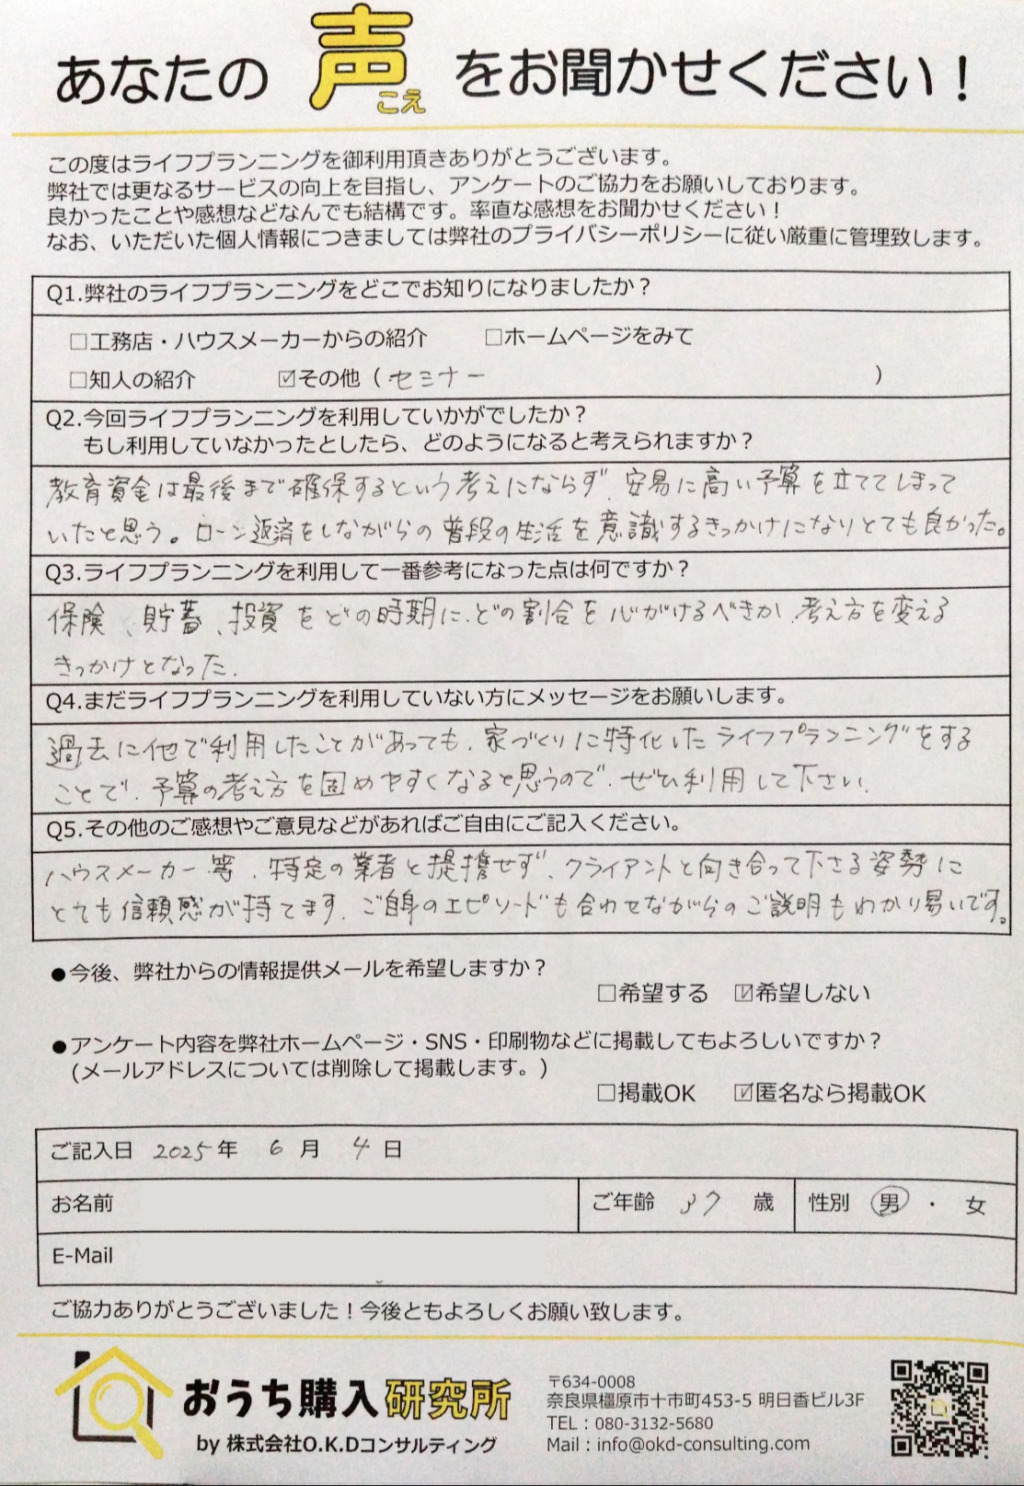 あなたの声をお聞かせください！
こえ
この度はライフプランニングを御利用頂きありがとうございます。
弊社では更なるサービスの向上を目指し、アンケートのご協力をお願いしております。
良かったことや感想などなんでも結構です。率直な感想をお聞かせください！
なお、いただいた個人情報につきましては弊社のプライバシーポリシーに従い厳重に管理致します。
Q1.弊社のライフプランニングをどこでお知りになりましたか？
□工務店・ハウスメーカーからの紹介 □ホームページをみて
□知人の紹介 ☑その他（ セミナー ）
Q2.今回ライフプランニングを利用していかがでしたか？
もし利用していなかったとしたら、どのようになると考えられますか？
教育資金は最後まで確保するという考えにならず、安易に高い予算を立ててしまって
いたと思う。ローン返済をしながらの普段の生活を意識するきっかけになりとても良かった。
Q3.ライフプランニングを利用して一番参考になった点は何ですか？
保険、貯蓄、投資をどの時期に、どの割合を心がけるべきか、考え方を変える
きっかけとなった.
Q4.まだライフプランニングを利用していない方にメッセージをお願いします。
過去に他で利用したことがあっても、家づくりに特化したライフプランニングをする
ことで、予算の考え方を固めやすくなると思うので、ぜひ利用して下さい.
Q5.その他のご感想やご意見などがあればご自由にご記入ください。
ハウスメーカー等、特定の業者と提携せず、クライアントと向き合って下さる姿勢に
とても信頼感が持てます、ご自身のエピソードも合わせながらのご説明もわかり易いです。
●今後、弊社からの情報提供メールを希望しますか？
□希望する ☑希望しない
●アンケート内容を弊社ホームページ・SNS・印刷物などに掲載してもよろしいですか？
(メールアドレスについては削除して掲載します。)
□掲載OK ☑匿名なら掲載OK
ご記入日 2025年 6月 4日
お名前 ご年齢 37 歳 性別 男 ・ 女
E-Mail
ご協力ありがとうございました！今後ともよろしくお願い致します。
おうち購入研究所
by 株式会社O.K.Dコンサルティング
〒634-0008
奈良県橿原市十市町453-5 明日香ビル3F
TEL：080-3132-5680
Mail：info@okd-consulting.com